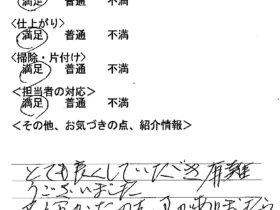 満足 普通 不満
<仕上がり>
満足 普通 不満
<掃除・片付け>
満足 普通 不満
<担当者の対応>
満足 普通 不満
<その他、お気づきの点、紹介情報>
とても良くしていただき有難
うございました